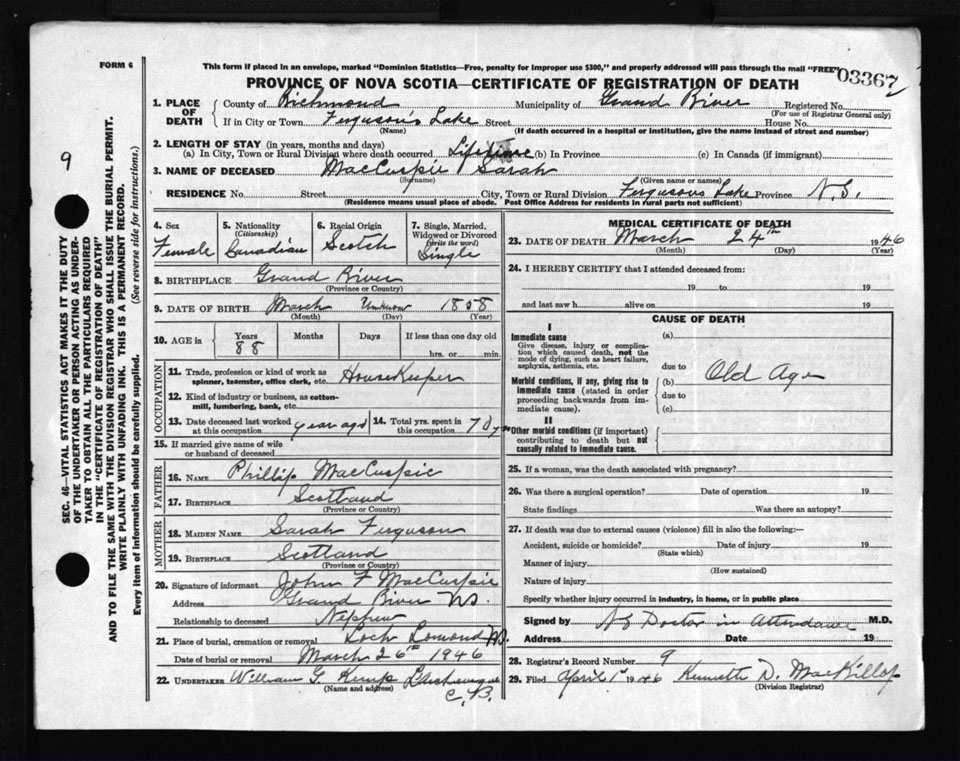 FORM 6
This form if placed in an envelope, marked "Dominion Statistics—Free, penalty for improper use $300," and properly addressed will pass through the mail "FREE"
03367
PROVINCE OF NOVA SCOTIA—CERTIFICATE OF REGISTRATION OF DEATH
1. PLACE OF DEATH County of Richmond Municipality of Grand River Registered No.
(For use of Registrar General only)
If in City or Town Ferguson's Lake Street House No.
(Name) (If death occurred in a hospital or institution, give the name instead of street and number)
2. LENGTH OF STAY (in years, months and days)
(a) In City, Town or Rural Division where death occurred Lifetime (b) In Province (c) In Canada (if immigrant)
3. NAME OF DECEASED MacCuspic Sarah
(Surname) (Given name or names)
RESIDENCE No. Street City, Town or Rural Division Fergusons Lake Province N.S.
(Residence means usual place of abode. Post Office Address for residents in rural parts not sufficient)
4. Sex Female
5. Nationality (Citizenship) Canadian
6. Racial Origin Scotch
7. Single, Married, Widowed or Divorced (write the word) Single
8. BIRTHPLACE Grand River
(Province or Country)
9. DATE OF BIRTH March Unknown 1858
(Month) (Day) (Year)
10. AGE in Years 88 Months Days If less than one day old
hrs. or min.
OCCUPATION
11. Trade, profession or kind of work as spinner, teamster, office clerk, etc. HouseKeeper
12. Kind of industry or business, as cotton-mill, lumbering, bank, etc.
13. Date deceased last worked at this occupation years ago 14. Total yrs. spent in this occupation 70 yrs
15. If married give name of wife or husband of deceased
FATHER
16. NAME Phillip MacCuspic
17. BIRTHPLACE Scotland
(Province or Country)
MOTHER
18. MAIDEN NAME Sarah Ferguson
19. BIRTHPLACE Scotland
(Province or Country)
20. Signature of informant John F MacCuspic
Address Grand River NS.
Relationship to deceased Nephew
21. Place of burial, cremation or removal Loch Lomond NS.
Date of burial or removal March 26th 1946
22. UNDERTAKER William G. Kemp
(Name and address)
C.B.
MEDICAL CERTIFICATE OF DEATH
23. DATE OF DEATH March 24th 1946
(Month) (Day) (Year)
24. I HEREBY CERTIFY that I attended deceased from:
19 to 19
and last saw h alive on 19
CAUSE OF DEATH
I
Immediate cause (a)
Give disease, injury or complication which caused death, not the mode of dying, such as heart failure, asphyxia, asthenia, etc.
due to
Morbid conditions, if any, giving rise to immediate cause (stated in order proceeding backwards from immediate cause).
(b) Old Age
due to
(c)
II
Other morbid conditions (if important) contributing to death but not causally related to immediate cause.
25. If a woman, was the death associated with pregnancy?
26. Was there a surgical operation? Date of operation 19
State findings Was there an autopsy?
27. If death was due to external causes (violence) fill in also the following—
Accident, suicide or homicide? Date of injury 19
(State which)
Manner of injury
(How sustained)
Nature of injury
Specify whether injury occurred in industry, in home, or in public place
Signed by No Doctor in Attendance M.D.
Address Date 19
28. Registrar's Record Number 9
29. Filed April 1st 1946 Kenneth D. MacKillop
(Division Registrar)
9
SEC. 46—VITAL STATISTICS ACT MAKES IT THE DUTY
OF THE UNDERTAKER OR PERSON ACTING AS UNDERTAKER TO OBTAIN ALL THE PARTICULARS REQUIRED
IN THE "CERTIFICATE OF REGISTRATION OF DEATH"
AND TO FILE THE SAME WITH THE DIVISION REGISTRAR WHO SHALL ISSUE THE BURIAL PERMIT.
WRITE PLAINLY WITH UNFADING INK. THIS IS A PERMANENT RECORD.
Every item of information should be carefully supplied. (See reverse side for instructions.)